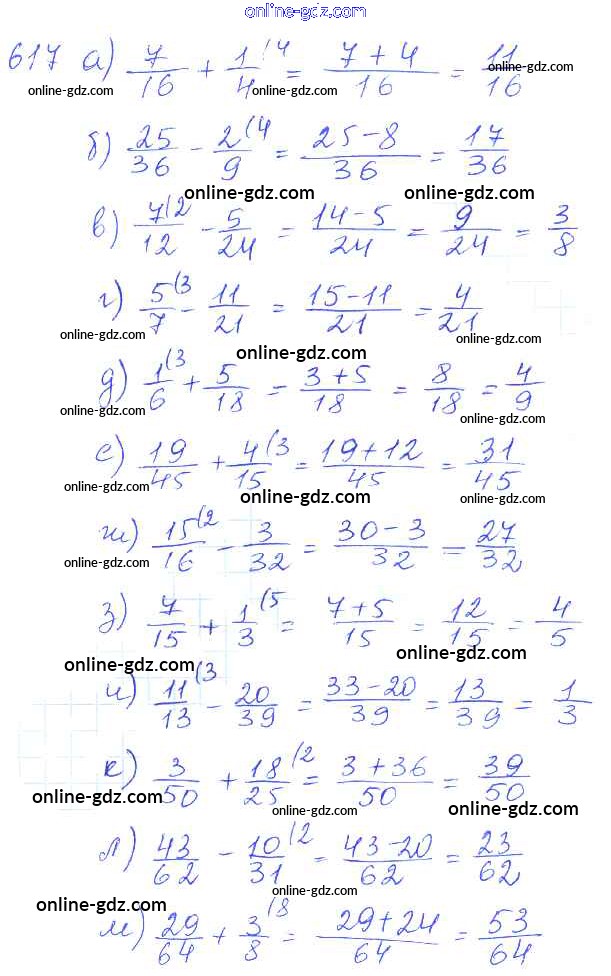 online-gdz.com
617 а) 7/16 + 1/4 (4 = 7+4/16 = 11/16
online-gdz.com online-gdz.com online-gdz.com online-gdz.com
б) 25/36 - 2/9 (4 = 25-8/36 = 17/36
online-gdz.com online-gdz.com
в) 7/12 (2 - 5/24 = 14-5/24 = 9/24 = 3/8
online-gdz.com online-gdz.com
г) 5/7 (3 - 11/21 = 15-11/21 = 4/21
online-gdz.com online-gdz.com
online-gdz.com
д) 1/6 (3 + 5/18 = 3+5/18 = 8/18 = 4/9
online-gdz.com online-gdz.com
online-gdz.com
е) 19/45 + 4/15 (3 = 19+12/45 = 31/45
online-gdz.com online-gdz.com online-gdz.com
ж) 15/16 (2 - 3/32 = 30-3/32 = 27/32
online-gdz.com online-gdz.com
з) 7/15 + 1/3 (5 = 7+5/15 = 12/15 = 4/5
online-gdz.com online-gdz.com
и) 11/13 (3 - 20/39 = 33-20/39 = 13/39 = 1/3
к) 3/50 + 18/25 (2 = 3+36/50 = 39/50
online-gdz.com online-gdz.com online-gdz.com
л) 43/62 - 10/31 (2 = 43-20/62 = 23/62
online-gdz.com online-gdz.com
м) 29/64 + 3/8 (8 = 29+24/64 = 53/64
online-gdz.com online-gdz.com